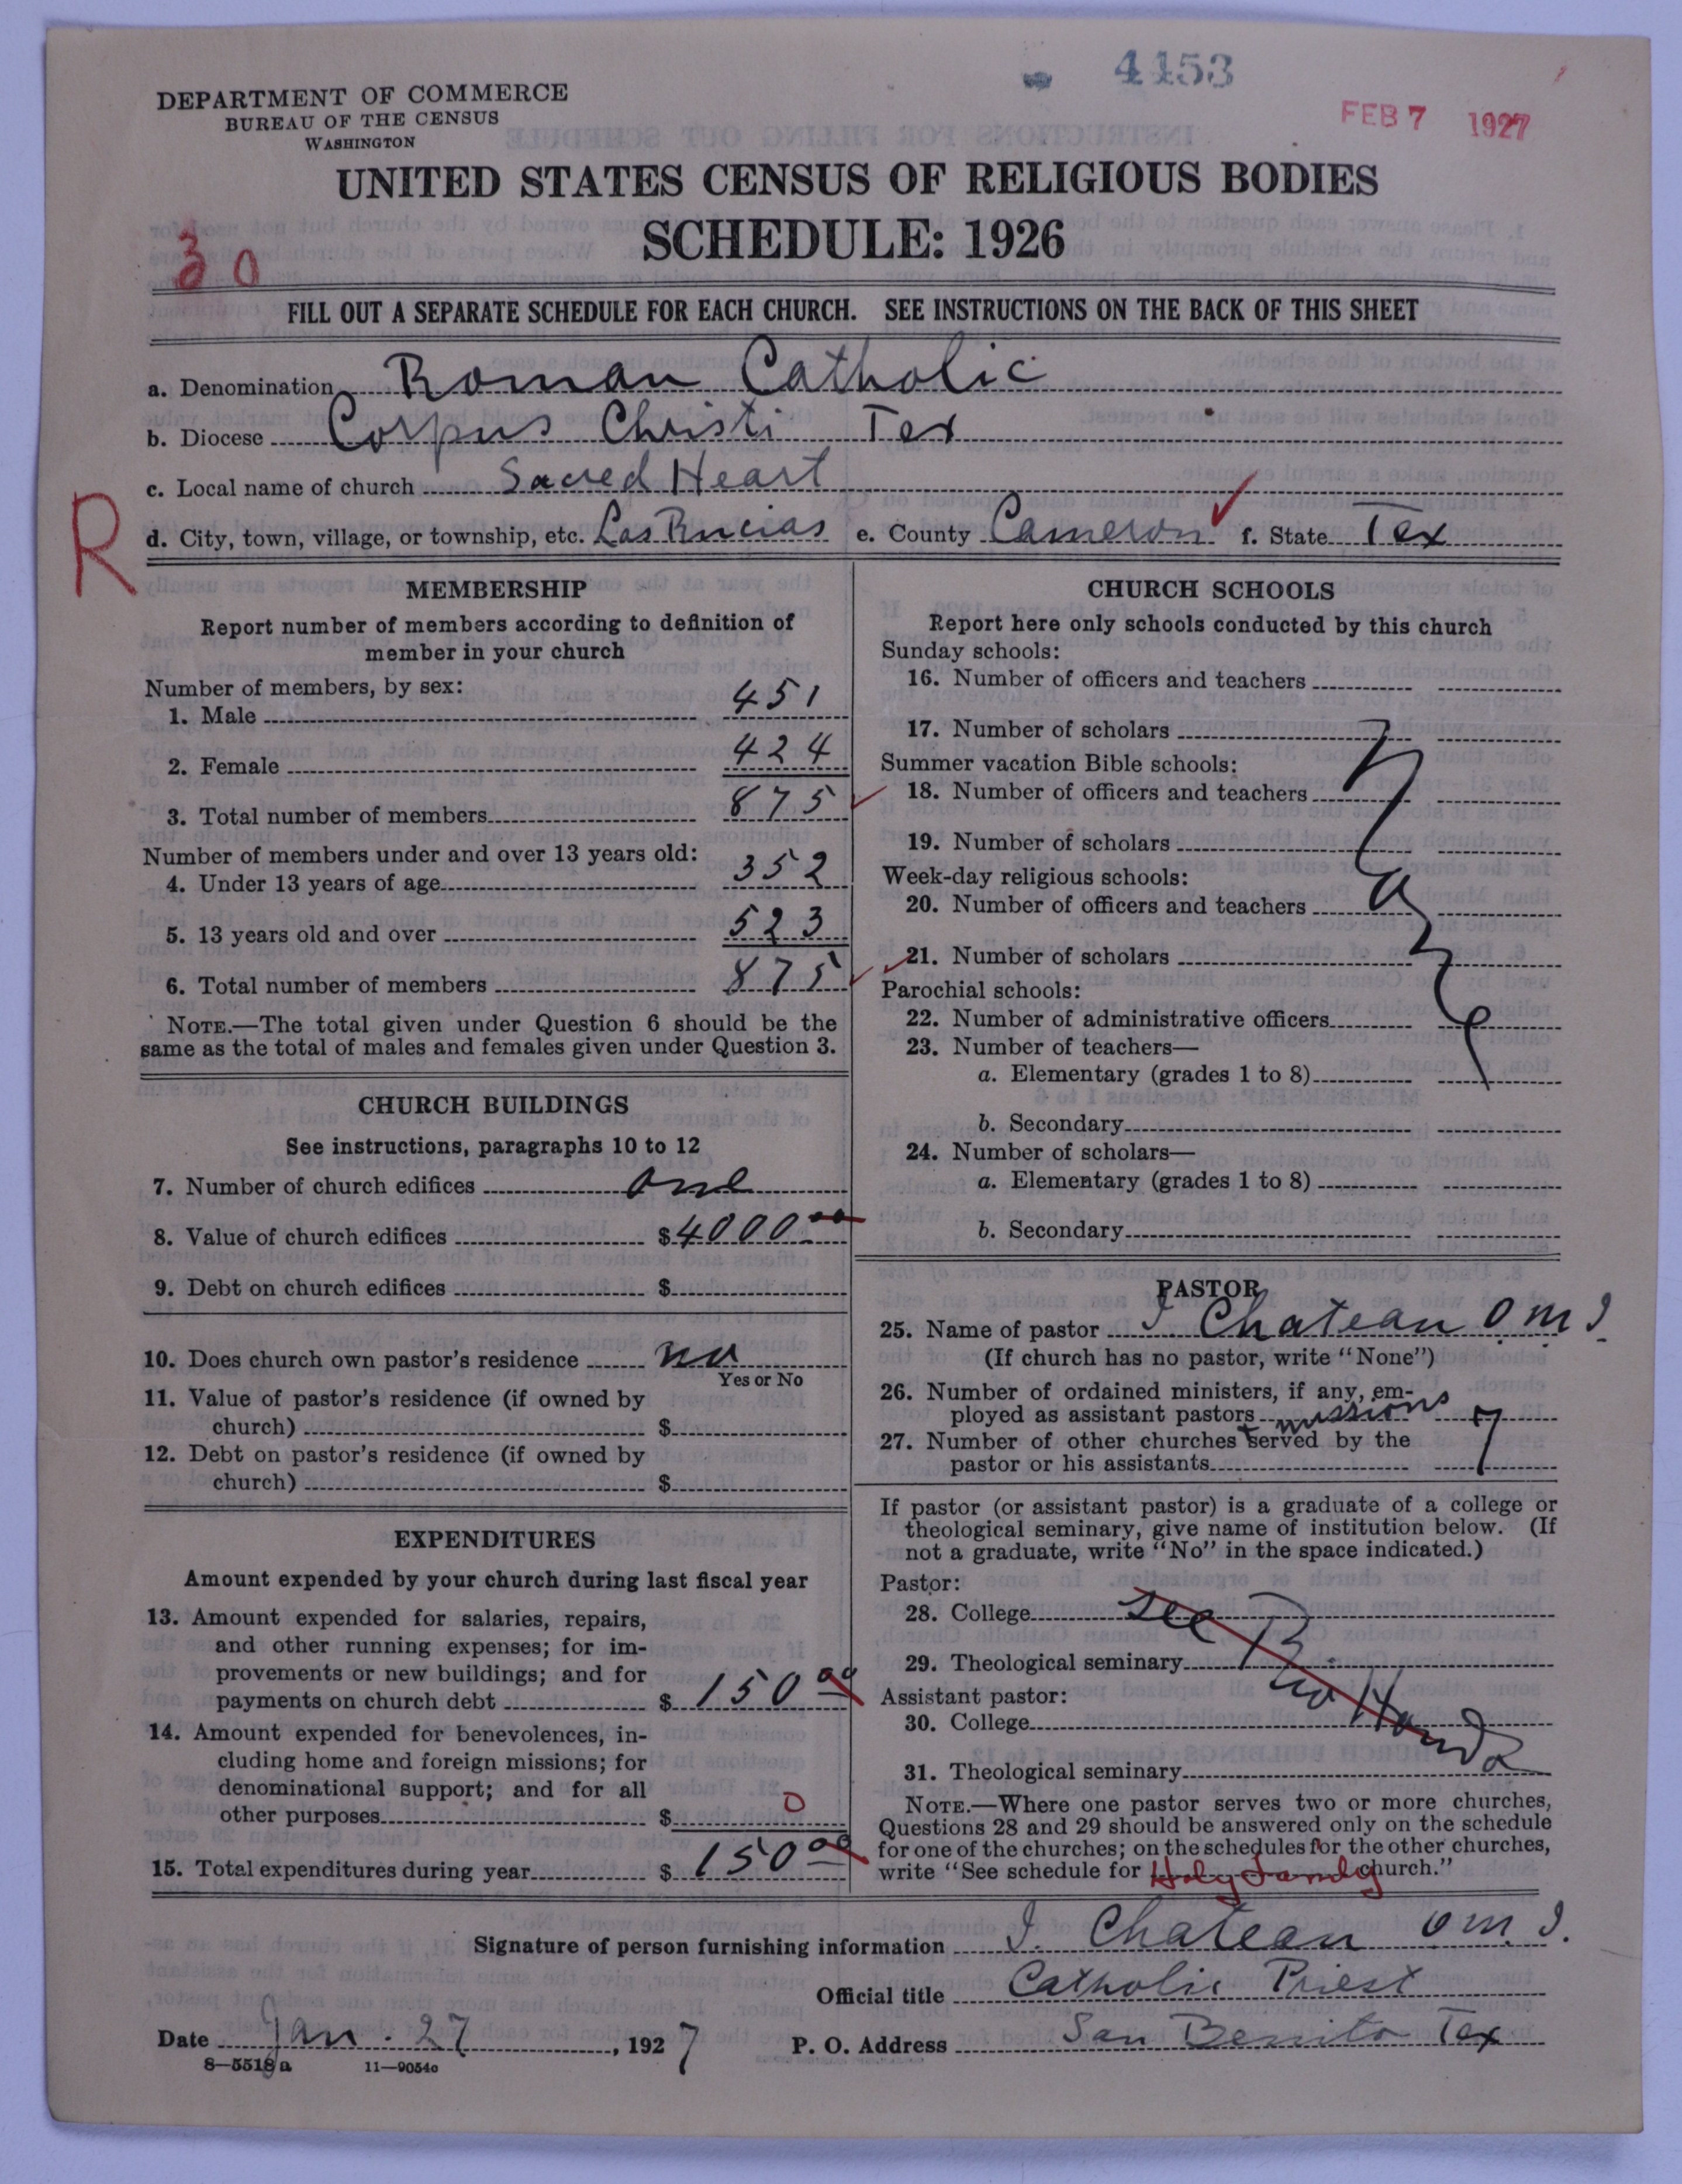 4453
FEB 7 1927
DEPARTMENT OF COMMERCE
BUREAU OF THE CENSUS
WASHINGTON
UNITED STATES CENSUS OF RELIGIOUS BODIES
SCHEDULE: 1926
30
FILL OUT A SEPARATE SCHEDULE FOR EACH CHURCH. SEE INSTRUCTIONS ON THE BACK OF THIS SHEET
a. Denomination Roman Catholic
b. Diocese Corpus Christi Tex
c. Local name of church Sacred Heart
R
d. City, town, village, or township, etc. Las Rucias e. County Cameron f. State Tex
MEMBERSHIP
Report number of members according to definition of
member in your church
Number of members, by sex:
1. Male 451
2. Female 424
3. Total number of members 875
Number of members under and over 13 years old:
4. Under 13 years of age 352
5. 13 years old and over 523
6. Total number of members 875
NOTE.—The total given under Question 6 should be the
same as the total of males and females given under Question 3.
CHURCH BUILDINGS
See instructions, paragraphs 10 to 12
7. Number of church edifices one
8. Value of church edifices $4000.00
9. Debt on church edifices $
10. Does church own pastor's residence no
Yes or No
11. Value of pastor's residence (if owned by
church) $
12. Debt on pastor's residence (if owned by
church) $
EXPENDITURES
Amount expended by your church during last fiscal year
13. Amount expended for salaries, repairs,
and other running expenses; for im-
provements or new buildings; and for
payments on church debt $ 150 00
14. Amount expended for benevolences, in-
cluding home and foreign missions; for
denominational support; and for all
other purposes $ 0
15. Total expenditures during year $ 150 00
CHURCH SCHOOLS
Report here only schools conducted by this church
Sunday schools:
16. Number of officers and teachers
17. Number of scholars
Summer vacation Bible schools:
18. Number of officers and teachers
19. Number of scholars
Week-day religious schools:
20. Number of officers and teachers
21. Number of scholars
Parochial schools:
22. Number of administrative officers
23. Number of teachers—
a. Elementary (grades 1 to 8)
b. Secondary
24. Number of scholars—
a. Elementary (grades 1 to 8)
b. Secondary
PASTOR
25. Name of pastor I Chateau O M I
(If church has no pastor, write "None")
26. Number of ordained ministers, if any, em-
ployed as assistant pastors
missions
27. Number of other churches served by the
pastor or his assistants 7
If pastor (or assistant pastor) is a graduate of a college or
theological seminary, give name of institution below. (If
not a graduate, write "No" in the space indicated.)
Pastor:
28. College see
29. Theological seminary
Assistant pastor:
30. College
31. Theological seminary
NOTE.—Where one pastor serves two or more churches,
Questions 28 and 29 should be answered only on the schedule
for one of the churches; on the schedules for the other churches,
write "See schedule for Holy Family church."
Signature of person furnishing information I. Chateau O M. I.
Official title Catholic Priest
Date Jan. 27, 1927 P. O. Address San Benito Tex
8—5518 a 11—9054c